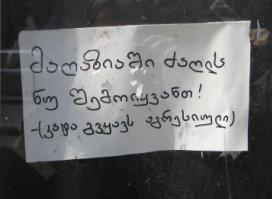 მაღაზიაში ძაღლს
ნუ შემოიყვანთ!
-(კატა გვყავს აგრესიული)